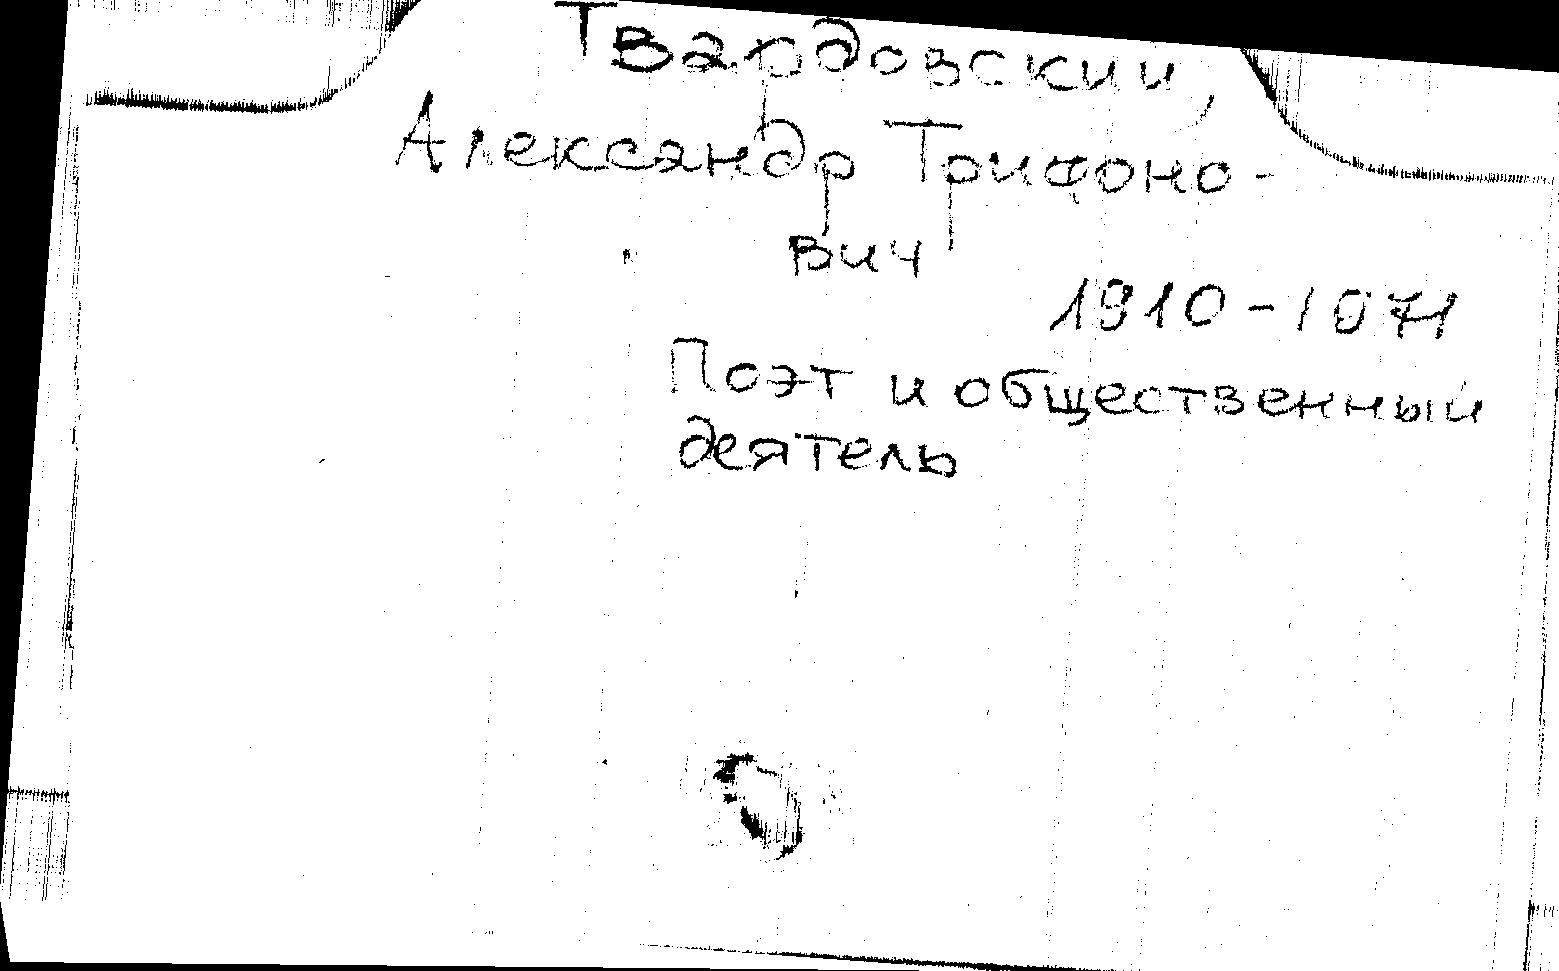 Твардовский,
Александр Трифоно-
вич
1910-1971
Поэт и общественный
деятель